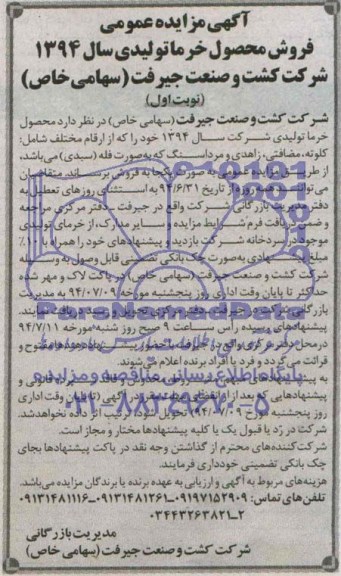 آگهی مزایده عمومی
فروش محصول خرما تولیدی سال ۱۳۹۴
شرکت کشت و صنعت جیرفت (سهامی خاص)
(نوبت اول)
شرکت کشت و صنعت جیرفت (سهامی خاص) در نظر دارد محصول
خرما تولیدی شرکت سال ۱۳۹۴ خود را که از ارقام مختلف شامل:
کلوته، مضافتی، زاهدی و مرداسنگ که به صورت فله (سبدی) می‌باشد،
از طریق مزایده عمومی به صورت یکجا به فروش برساند. متقاضیان
می‌توانند همه روزه از تاریخ ۹۴/۶/۳۱ به استثنای روزهای تعطیل به
دفتر مدیریت بازرگانی شرکت واقع در جیرفت - دفتر مرکزی مراجعه
و ضمن دریافت فرم شرایط مزایده و سایر مدارک، از خرمای تولیدی
موجود در سردخانه شرکت بازدید و پیشنهادهای خود را همراه با ۱۰٪
مبلغ پیشنهادی به صورت چک بانکی تضمینی قابل وصول به وسیله
شرکت کشت و صنعت جیرفت (سهامی خاص) در پاکت لاک و مهر شده
حداکثر تا پایان وقت اداری روز پنجشنبه مورخه ۹۴/۰۷/۰۹ به مدیریت
بازرگانی جیرفت دفتر مرکزی تحویل و رسید دریافت نمایند.
پیشنهادهای رسیده رأس ساعت ۹ صبح روز شنبه مورخه ۹۴/۷/۱۱
در محل دفتر مرکزی واقع در جیرفت با حضور پیشنهاددهندها مفتوح و
قرائت می‌گردد و فرد یا افراد برنده اعلام می‌شوند.
به پیشنهادهای مبهم، مشروط، مخدوش و فاقد سپرده قانونی و
پیشنهادهایی که بعد از انقضای مدت مقرر در آگهی (تا پایان وقت اداری
روز پنجشنبه مورخ ۹۴/۰۷/۰۹) تحویل گردد ترتیب اثر داده نخواهد شد.
شرکت در رد یا قبول یک یا کلیه پیشنهادها مختار و مجاز است.
شرکت‌کننده‌های محترم از گذاشتن وجه نقد در پاکت پیشنهادها بجای
چک بانکی تضمینی خودداری فرمایند.
هزینه‌های مربوط به آگهی و ارزیابی به عهده برنده یا برندگان مزایده می‌باشد.
تلفن‌های تماس: ۰۹۱۹۷۱۵۲۹۰۹-۰۹۱۳۱۴۸۱۲۶۱-۰۹۱۳۱۴۸۱۱۱۶
۰۳۴۴۳۲۶۳۸۲۱-۲
مدیریت بازرگانی
شرکت کشت و صنعت جیرفت (سهامی خاص)
ParsNamadData
پایگاه اطلاع رسانی مناقصه و مزایده
۰۲۱-۸۸۳۴۹۶۷۰-۵